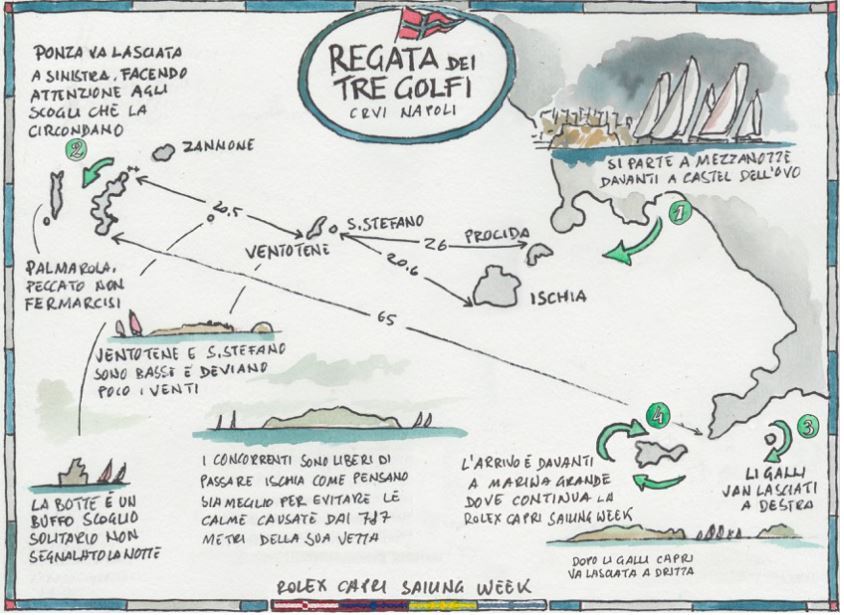 REGATA DEI
TRE GOLFI
CRVI NAPOLI
PONZA VA LASCIATA
A SINISTRA, FACENDO
ATTENZIONE AGLI
SCOGLI CHE LA
CIRCONDANO
SI PARTE A MEZZANOTTE
DAVANTI A CASTEL DELL'OVO
2
ZANNONE
1
20,5
S.STEFANO
VENTOTENE
26
PROCIDA
20,6
ISCHIA
65
PALMAROLA,
PECCATO NON
FERMARCISI
VENTOTENE E S.STEFANO
SONO BASSE E DEVIANO
POCO I VENTI
4
3
LA BOTTE È UN
BUFFO SCOGLIO
SOLITARIO NON
SEGNALATO LA NOTTE
I CONCORRENTI SONO LIBERI DI
PASSARE ISCHIA COME PENSANO
SIA MEGLIO PER EVITARE LE
CALME CAUSATE DAI 787
METRI DELLA SUA VETTA
L'ARRIVO È DAVANTI
A MARINA GRANDE
DOVE CONTINUA LA
ROLEX CAPRI SAILING WEEK
LI GALLI
VAN LASCIATI
A DESTRA
DOPO LI GALLI CAPRI
VA LASCIATA A DRITTA
ROLEX CAPRI SAILING WEEK